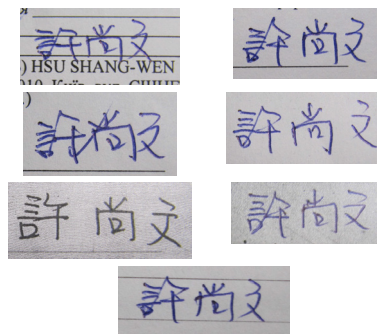 許尚文
) HSU SHANG-WEN
許尚文
許尚文
許尚文
許尚文
許尚文
許尚文